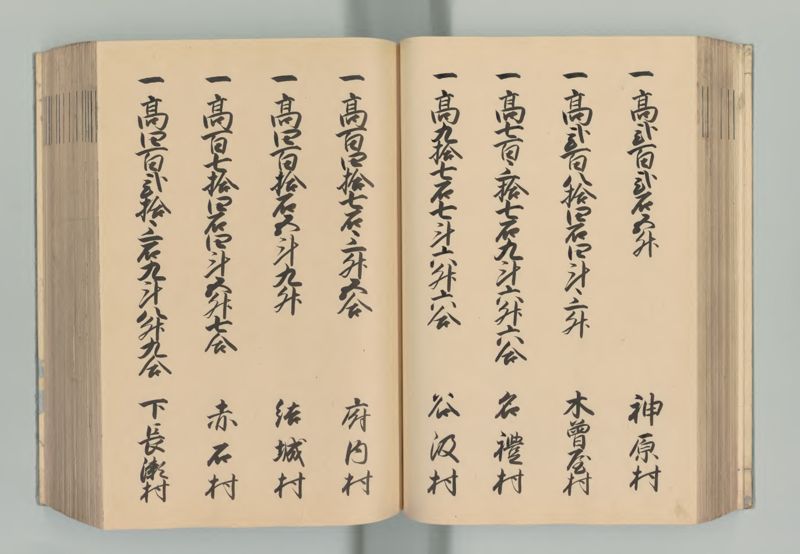 一高弐百弐石五升 神原村
一高弐百八拾四石四斗三升 木曽屋村
一高七百三拾七石九斗六升六合 名禮村
一高九拾七石七斗六升六合 谷汲村
一高百四拾七石三升五合 府内村
一高四百拾石五斗九升 結城村
一高百七拾四石四斗五升七合 赤石村
一高四百弐拾三石九斗八升九合 下長瀬村